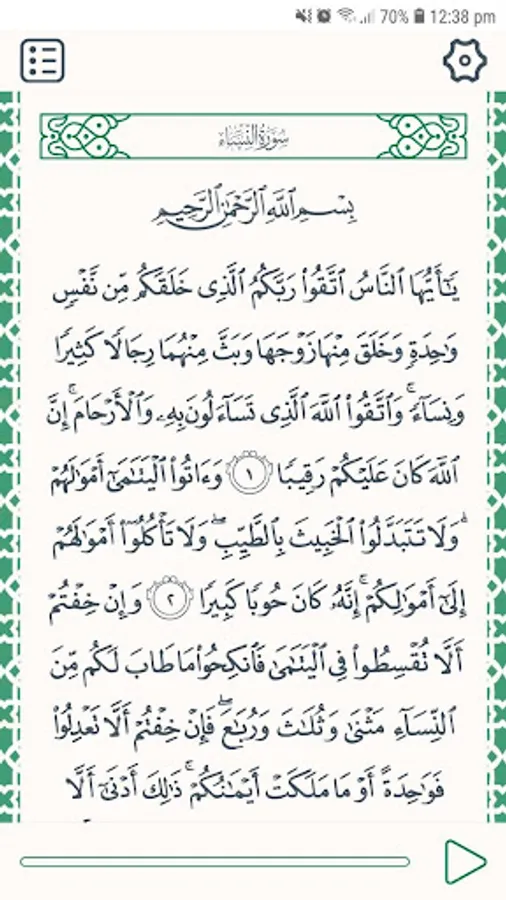 70% 12:38 pm
سُورَةُ النِّسَاءِ
بِسْمِ ٱللَّهِ ٱلرَّحْمَٰنِ ٱلرَّحِيمِ
يَٰٓأَيُّهَا ٱلنَّاسُ ٱتَّقُوا۟ رَبَّكُمُ ٱلَّذِى خَلَقَكُم مِّن نَّفْسٍ
وَٰحِدَةٍ وَخَلَقَ مِنْهَا زَوْجَهَا وَبَثَّ مِنْهُمَا رِجَالًا كَثِيرًا
وَنِسَآءً ۚ وَٱتَّقُوا۟ ٱللَّهَ ٱلَّذِى تَسَآءَلُونَ بِهِۦ وَٱلْأَرْحَامَ ۚ إِنَّ
ٱللَّهَ كَانَ عَلَيْكُمْ رَقِيبًا ١ وَءَاتُوا۟ ٱلْيَتَٰمَىٰٓ أَمْوَٰلَهُمْ
ۖ وَلَا تَتَبَدَّلُوا۟ ٱلْخَبِيثَ بِٱلطَّيِّبِ ۖ وَلَا تَأْكُلُوٓا۟ أَمْوَٰلَهُمْ
إِلَىٰٓ أَمْوَٰلِكُمْ ۚ إِنَّهُۥ كَانَ حُوبًا كَبِيرًا ٢ وَإِنْ خِفْتُمْ
أَلَّا تُقْسِطُوا۟ فِى ٱلْيَتَٰمَىٰ فَٱنكِحُوا۟ مَا طَابَ لَكُم مِّنَ
ٱلنِّسَآءِ مَثْنَىٰ وَثُلَٰثَ وَرُبَٰعَ ۖ فَإِنْ خِفْتُمْ أَلَّا تَعْدِلُوا۟
فَوَٰحِدَةً أَوْ مَا مَلَكَتْ أَيْمَٰنُكُمْ ۚ ذَٰلِكَ أَدْنَىٰٓ أَلَّا